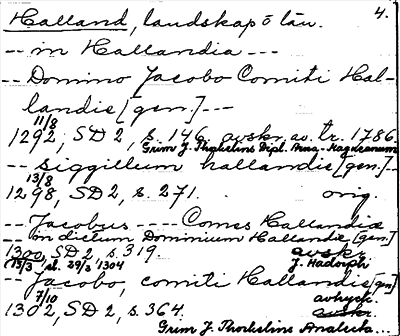 Halland, landskap o län. 4.
-- in Hallandia ---
-- Domino Jacobo Comiti Hal-
landie [gen.] ---
11/8
1292, SD 2, s. 146. avskr. av tr. 1786.
Grim J. Thorkelins Dipl. Arna-Magnæanum
-- siggillum hallandie [gen.] --
13/8
1298, SD 2, s. 271. orig.
-- Jacobus ---- Comes Hallandiæ
-- in dictum Dominium Hallandie [gen.]
1300, SD 2, s. 319. avskr.
13/3 el. 29/3 1304 J. Hadorph
-- Jacobo, comiti Hallandie [gen]
7/10 avtryck.
1302, SD 2, s. 364. avskr.
Grim J. Thorkelins Analecta...